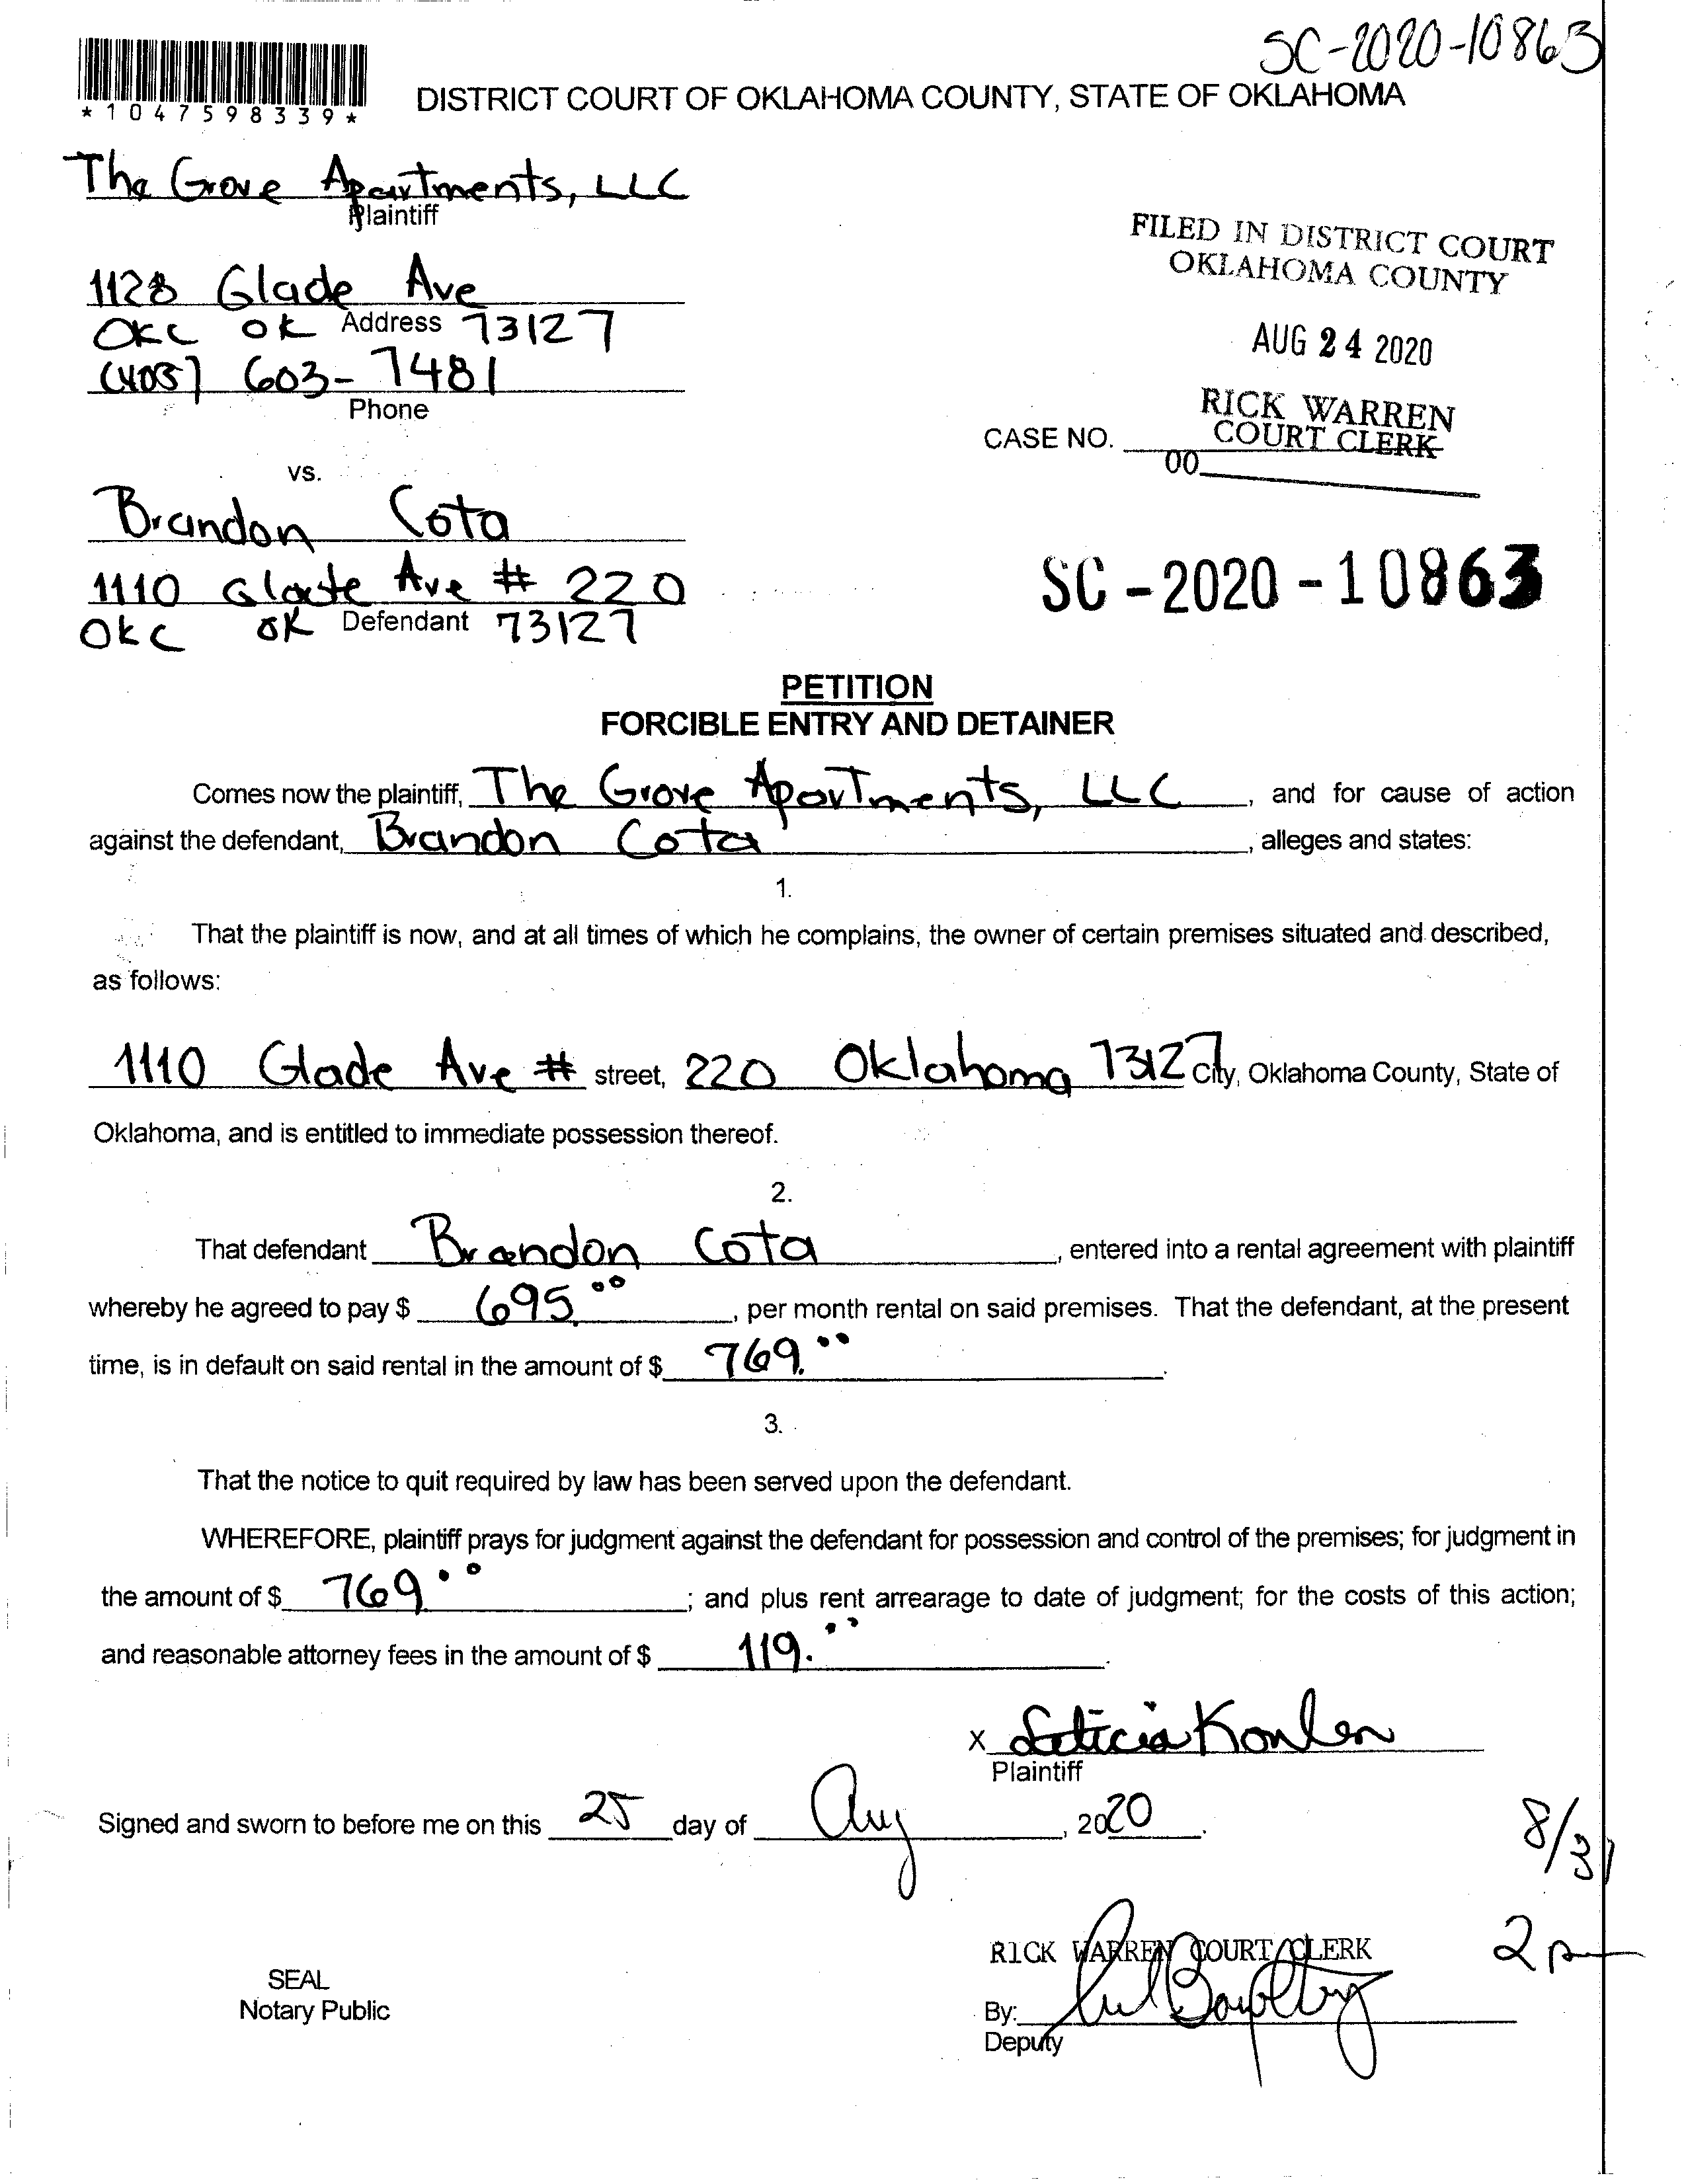 SC-2020-10863
*1047598339*
DISTRICT COURT OF OKLAHOMA COUNTY, STATE OF OKLAHOMA
The Grove Apartments, LLC
Plaintiff
1128 Glade Ave
OKC OK Address 73127
(405) 603-7481
Phone
FILED IN DISTRICT COURT
OKLAHOMA COUNTY
AUG 24 2020
RICK WARREN
COURT CLERK
CASE NO.
00
vs.
Brandon Cota
1110 Glade Ave # 220
OKC OK Defendant 73127
SC-2020-10863
PETITION
FORCIBLE ENTRY AND DETAINER
Comes now the plaintiff, The Grove Apartments, LLC, and for cause of action
against the defendant, Brandon Cota, alleges and states:
1.
That the plaintiff is now, and at all times of which he complains, the owner of certain premises situated and described,
as follows:
1110 Glade Ave # street, 220 Oklahoma 73127 City, Oklahoma County, State of
Oklahoma, and is entitled to immediate possession thereof.
2.
That defendant Brandon Cota, entered into a rental agreement with plaintiff
whereby he agreed to pay $ 695.00, per month rental on said premises. That the defendant, at the present
time, is in default on said rental in the amount of $ 769.00.
3.
That the notice to quit required by law has been served upon the defendant.
WHEREFORE, plaintiff prays for judgment against the defendant for possession and control of the premises; for judgment in
the amount of $ 769.00; and plus rent arrearage to date of judgment; for the costs of this action;
and reasonable attorney fees in the amount of $ 119.00.
X Leticia
Plaintiff
Signed and sworn to before me on this 25 day of Aug, 2020.
8/31
2 pm
RICK WARREN COURT CLERK
By:
Deputy
SEAL
Notary Public